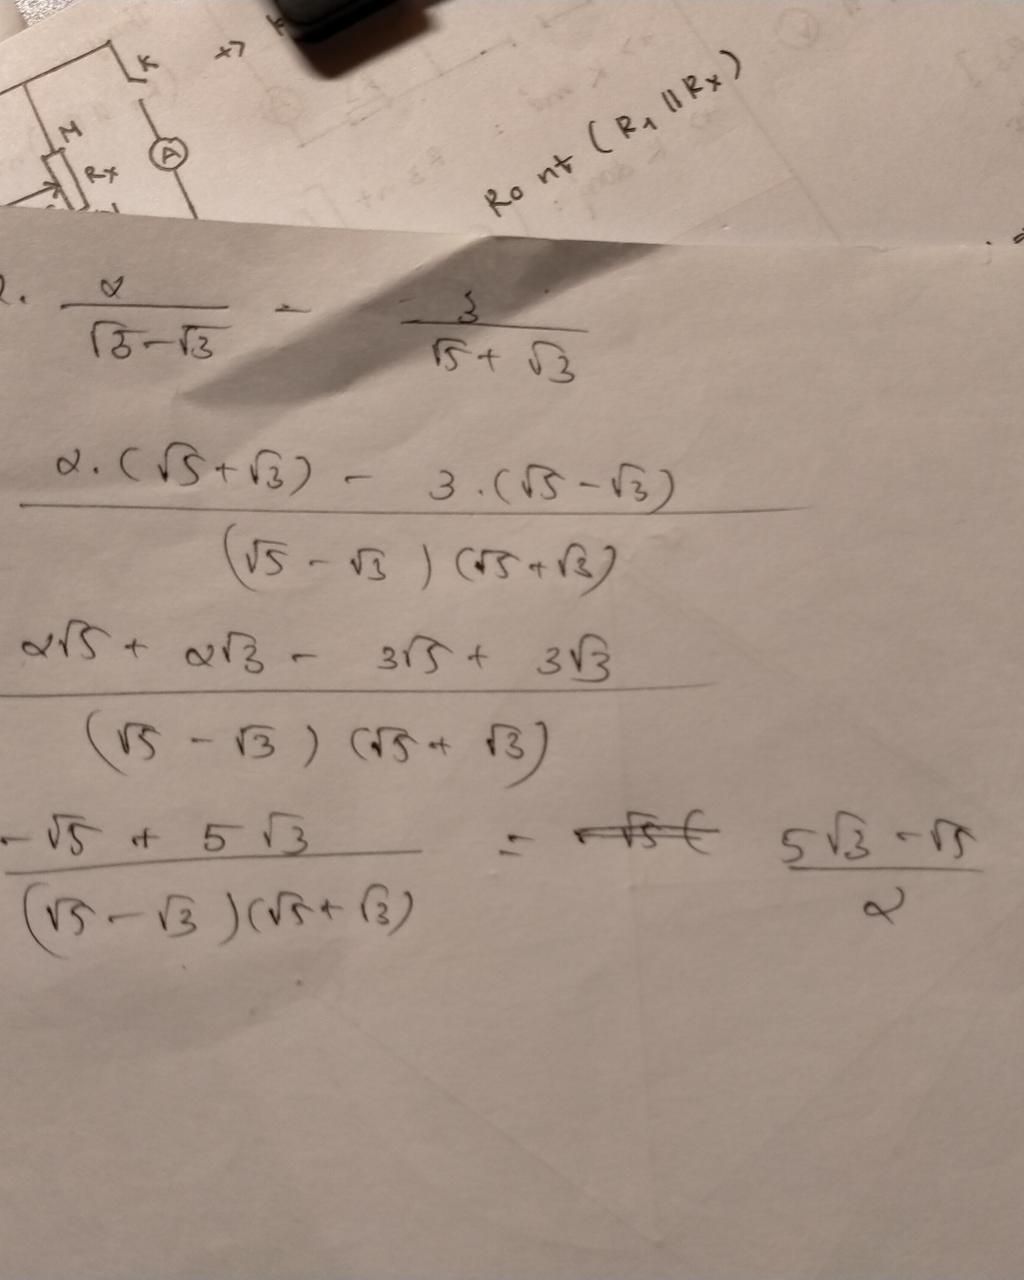 K
A
M
Rx
R0 nt (R1 || Rx)
2. 2/(√5-√3) - 3/(√5+√3)
2.(√5+√3) - 3.(√5-√3)
(√5-√3)(√5+√3)
2√5 + 2√3 - 3√5 + 3√3
(√5-√3)(√5+√3)
-√5 + 5√3 / (√5-√3)(√5+√3) = (5√3-√5)/2